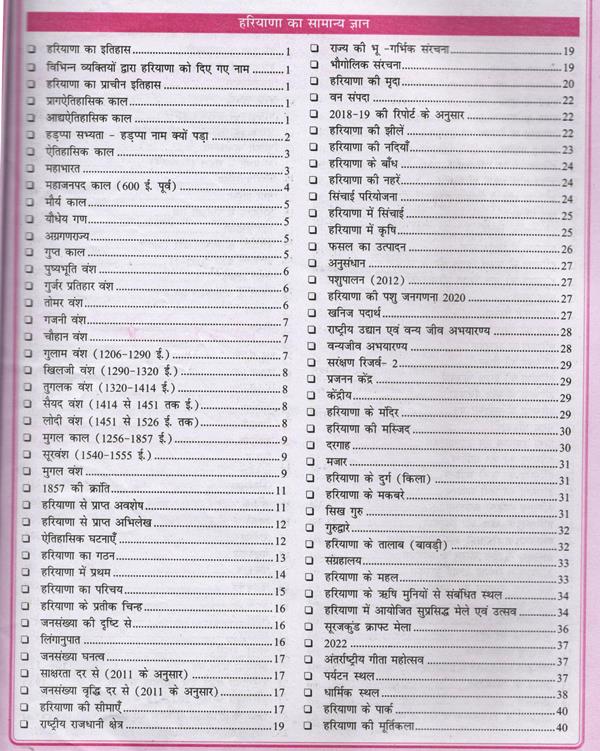 हरियाणा का सामान्य ज्ञान
❑ हरियाणा का इतिहास 1
❑ विभिन्न व्यक्तियों द्वारा हरियाणा को दिए गए नाम 1
❑ हरियाणा का प्राचीन इतिहास 1
❑ प्रागऐतिहासिक काल 1
❑ आद्यऐतिहासिक काल 1
❑ हड़प्पा सभ्यता - हड़प्पा नाम क्यों पड़ा 2
❑ ऐतिहासिक काल 3
❑ महाभारत 3
❑ महाजनपद काल (600 ई. पूर्व) 4
❑ मौर्य काल 5
❑ यौधेय गण 5
❑ अग्रगणराज्य 5
❑ गुप्त काल 5
❑ पुष्यभूति वंश 6
❑ गुर्जर प्रतिहार वंश 6
❑ तोमर वंश 6
❑ गजनी वंश 7
❑ चौहान वंश 7
❑ गुलाम वंश (1206-1290 ई.) 7
❑ खिलजी वंश (1290-1320 ई.) 8
❑ तुगलक वंश (1320-1414 ई.) 8
❑ सैयद वंश (1414 से 1451 तक ई.) 8
❑ लोदी वंश (1451 से 1526 ई. तक) 8
❑ मुगल काल (1256-1857 ई.) 9
❑ सूरवंश (1540-1555 ई.) 9
❑ मुगल वंश 9
❑ 1857 की क्रांति 11
❑ हरियाणा से प्राप्त अवशेष 11
❑ हरियाणा से प्राप्त अभिलेख 12
❑ ऐतिहासिक घटनाएँ 12
❑ हरियाणा का गठन 13
❑ हरियाणा में प्रथम 14
❑ हरियाणा का परिचय 15
❑ हरियाणा के प्रतीक चिन्ह 16
❑ जनसंख्या की दृष्टि से 16
❑ लिंगानुपात 16
❑ जनसंख्या घनत्व 17
❑ साक्षरता दर से (2011 के अनुसार) 17
❑ जनसंख्या वृद्धि दर से (2011 के अनुसार) 17
❑ हरियाणा की सीमाएँ 17
❑ राष्ट्रीय राजधानी क्षेत्र 19
❑ राज्य की भू -गर्भिक संरचना 19
❑ भौगोलिक संरचना 19
❑ हरियाणा की मृदा 20
❑ वन संपदा 22
❑ 2018-19 की रिपोर्ट के अनुसार 22
❑ हरियाणा की झीलें 22
❑ हरियाणा की नदियाँ 23
❑ हरियाणा के बाँध 24
❑ हरियाणा की नहरें 24
❑ सिंचाई परियोजना 24
❑ हरियाणा में सिंचाई 25
❑ हरियाणा में कृषि 25
❑ फसल का उत्पादन 26
❑ अनुसंधान 27
❑ पशुपालन (2012) 27
❑ हरियाणा की पशु जनगणना 2020 27
❑ खनिज पदार्थ 27
❑ राष्ट्रीय उद्यान एवं वन्य जीव अभयारण्य 28
❑ वन्यजीव अभयारण्य 28
❑ सरंक्षण रिजर्व- 2 29
❑ प्रजनन केंद्र 29
❑ केंद्रीय 29
❑ हरियाणा के मंदिर 29
❑ हरियाणा की मस्जिद 30
❑ दरगाह 30
❑ मजार 31
❑ हरियाणा के दुर्ग (किला) 31
❑ हरियाणा के मकबरे 31
❑ सिख गुरु 31
❑ गुरुद्वारे 32
❑ हरियाणा के तालाब (बावड़ी) 32
❑ संग्रहालय 33
❑ हरियाणा के महल 33
❑ हरियाणा के ऋषि मुनियों से संबंधित स्थल 34
❑ हरियाणा में आयोजित सुप्रसिद्ध मेले एवं उत्सव 34
❑ सूरजकुंड क्राफ्ट मेला 36
❑ 2022 37
❑ अंतर्राष्ट्रीय गीता महोत्सव 37
❑ पर्यटन स्थल 37
❑ धार्मिक स्थल 38
❑ हरियाणा के पार्क 40
❑ हरियाणा की मूर्तिकला 40